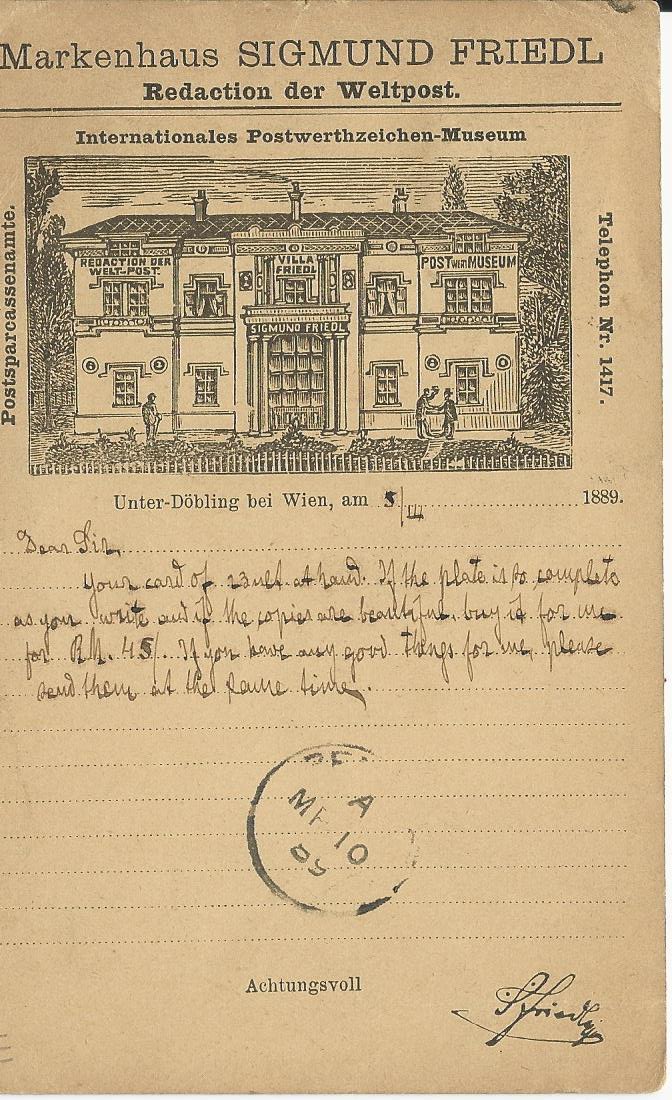 Markenhaus SIGMUND FRIEDL
Redaction der Weltpost.
Internationales Postwerthzeichen-Museum
Postsparcassenamte.
REDACTION DER
WELT-POST.
VILLA
FRIEDL
POSTWERTH MUSEUM
SIGMUND FRIEDL
Telephon Nr. 1417.
Unter-Döbling bei Wien, am 5/III 1889.
Dear Sir,
Your card of 23 ult at hand. If the plate is so complete
as you write and if the copies are beautiful, buy it for me
for RM. 45/. If you have any good things for me, please
send them at the same time.
A
MR 10
Achtungsvoll
SFriedl